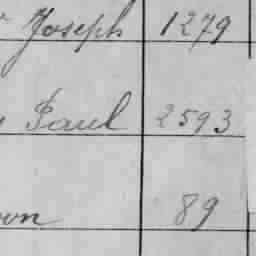 Joseph 1279
Paul 2593
89